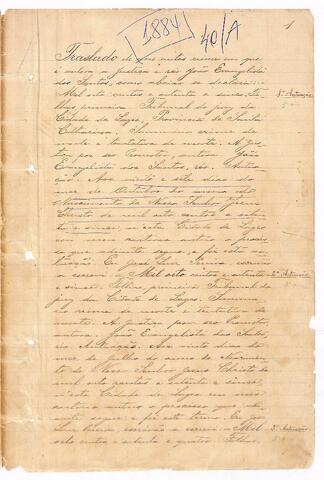 1884
40/A
1
Traslado de uns autos crime em que
é autora a Justiça e réo João Evangelista
dos Santos, como abaixo se declara:
Mil oito centos e oitenta e cinco, Fo-
lhas primeira Tribunal do jury da
Cidade de Lages, Provincia de Santa
Catharina, Summario crime de
morte e tentativa de morte. A Jus-
tiça por seu Promotor, autora. João
Evangelista dos Santos, réo. Autua-
ção. Aos vinte e sete dias do
mez de Outubro do anno do
Nascimento de Nosso Senhor Jesus
Christo de mil oito centos e oiten-
ta e cinco, n'esta Cidade de Lages
em meu cartorio autuo o proces-
so que adiante segue, e fiz esta au-
tuação. Eu José Luis Pereira, escrivão
o escrevi. Mil oito centos e oitenta
e cinco. Folhas, primeira Tribunal do
jury da Cidade de Lages, Summa-
rio crime de morte e tentativa de
morte. A Justiça por seu Promotor,
autora. João Evangelista dos Santos,
réo. Autuação. Aos vinte dias do
mez de Julho do anno do Nascimen-
to de Nosso Senhor Jesus Christo de
mil oito centos e oitenta e cinco,
n'esta Cidade de Lages em meu
cartorio autuo o processo que adi-
ante segue, e fiz este termo. Eu José
Luis Pereira, escrivão o escrevi. Mil
oito centos e oitenta e quatro. Folhas,
3ª Autuação
2ª Autuação